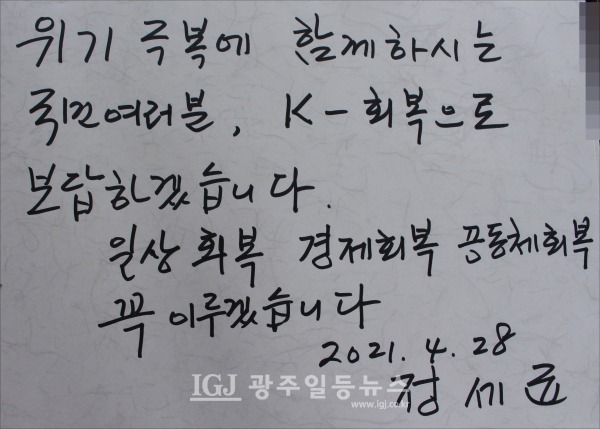 위기 극복에 함께하시는
국민여러분, K-회복으로
보답하겠습니다.
일상 회복 경제회복 공동체회복
꼭 이루겠습니다
2021. 4. 28
정세균
IGJ 광주일등뉴스
www.igj.co.kr